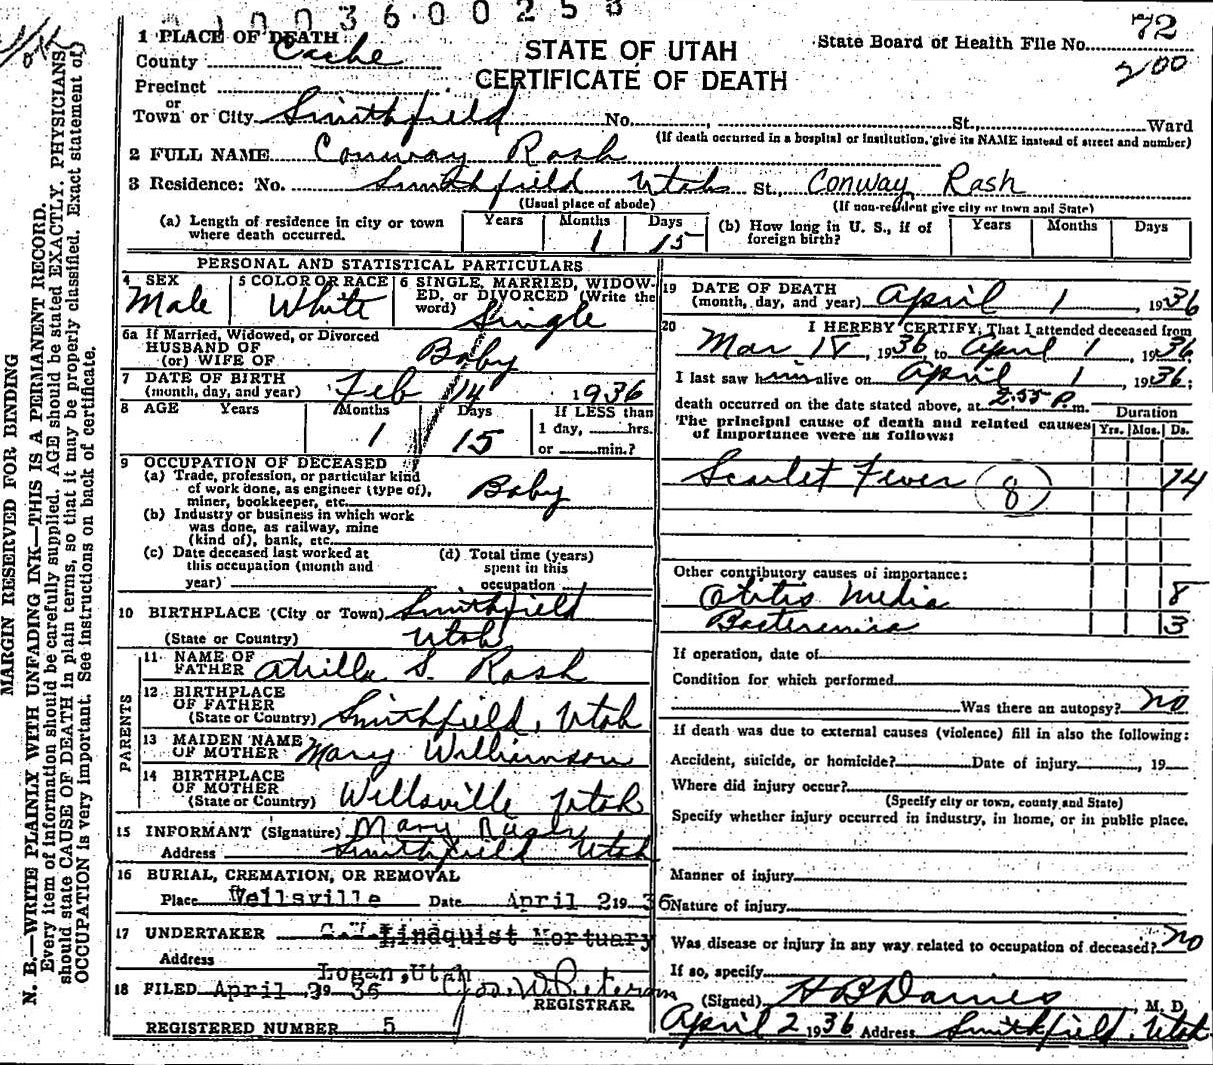 1003600258
1 PLACE OF DEATH
County Cache
STATE OF UTAH
CERTIFICATE OF DEATH
State Board of Health File No. 72
200
Precinct
or
Town or City Smithfield No. St., Ward
(If death occurred in a hospital or institution, give its NAME instead of street and number)
2 FULL NAME Conway Rash
3 Residence: No. Smithfield Utah St., Conway Rash
(Usual place of abode) (If non-resident give city or town and State)
(a) Length of residence in city or town where death occurred. Years Months 1 Days 15
(b) How long in U. S., if of foreign birth? Years Months Days
PERSONAL AND STATISTICAL PARTICULARS
4 SEX Male
5 COLOR OR RACE White
6 SINGLE, MARRIED, WIDOWED, or DIVORCED (Write the word) Single
6a If Married, Widowed, or Divorced
HUSBAND OF
(or) WIFE OF Baby
7 DATE OF BIRTH
(month, day, and year) Feb 14 1936
8 AGE Years Months 1 Days 15
If LESS than
1 day, hrs.
or min.?
9 OCCUPATION OF DECEASED
(a) Trade, profession, or particular kind
of work done, as engineer (type of),
miner, bookkeeper, etc. Baby
(b) Industry or business in which work
was done, as railway, mine
(kind of), bank, etc.
(c) Date deceased last worked at
this occupation (month and
year)
(d) Total time (years)
spent in this
occupation
10 BIRTHPLACE (City or Town) Smithfield
(State or Country) Utah
PARENTS
11 NAME OF
FATHER S. Rash
12 BIRTHPLACE
OF FATHER
(State or Country) Smithfield, Utah
13 MAIDEN NAME
OF MOTHER Mary Williamson
14 BIRTHPLACE
OF MOTHER
(State or Country) Wellsville Utah
15 INFORMANT (Signature) Mary
Address Smithfield Utah
16 BURIAL, CREMATION, OR REMOVAL
Place Wellsville Date April 2 1936
17 UNDERTAKER Lindquist Mortuary
Address
Logan, Utah
18 FILED April 1936
REGISTRAR
REGISTERED NUMBER 5
19 DATE OF DEATH
(month, day, and year) April 1, 1936
20 I HEREBY CERTIFY, That I attended deceased from
Mar 18, 1936, to April 1, 1936.
I last saw him alive on April 1, 1936;
death occurred on the date stated above, at 2:55 P. m.
The principal cause of death and related causes
of importance were as follows:
Duration
Yrs. Mos. Ds.
Scarlet Fever 8 14
Other contributory causes of importance:
Otitis Media 8
Bacteremia 3
If operation, date of
Condition for which performed
Was there an autopsy? no
If death was due to external causes (violence) fill in also the following:
Accident, suicide, or homicide? Date of injury , 19
Where did injury occur?
(Specify city or town, county and State)
Specify whether injury occurred in industry, in home, or in public place.
Manner of injury
Nature of injury
Was disease or injury in any way related to occupation of deceased? no
If so, specify
(Signed) , M. D.
April 2 1936 Address Smithfield, Utah
MARGIN RESERVED FOR BINDING
N. B.—WRITE PLAINLY WITH UNFADING INK—THIS IS A PERMANENT RECORD.
Every item of information should be carefully supplied. AGE should be stated EXACTLY. PHYSICIANS
should state CAUSE OF DEATH in plain terms, so that it may be properly classified. Exact statement of
OCCUPATION is very important. See instructions on back of certificate.